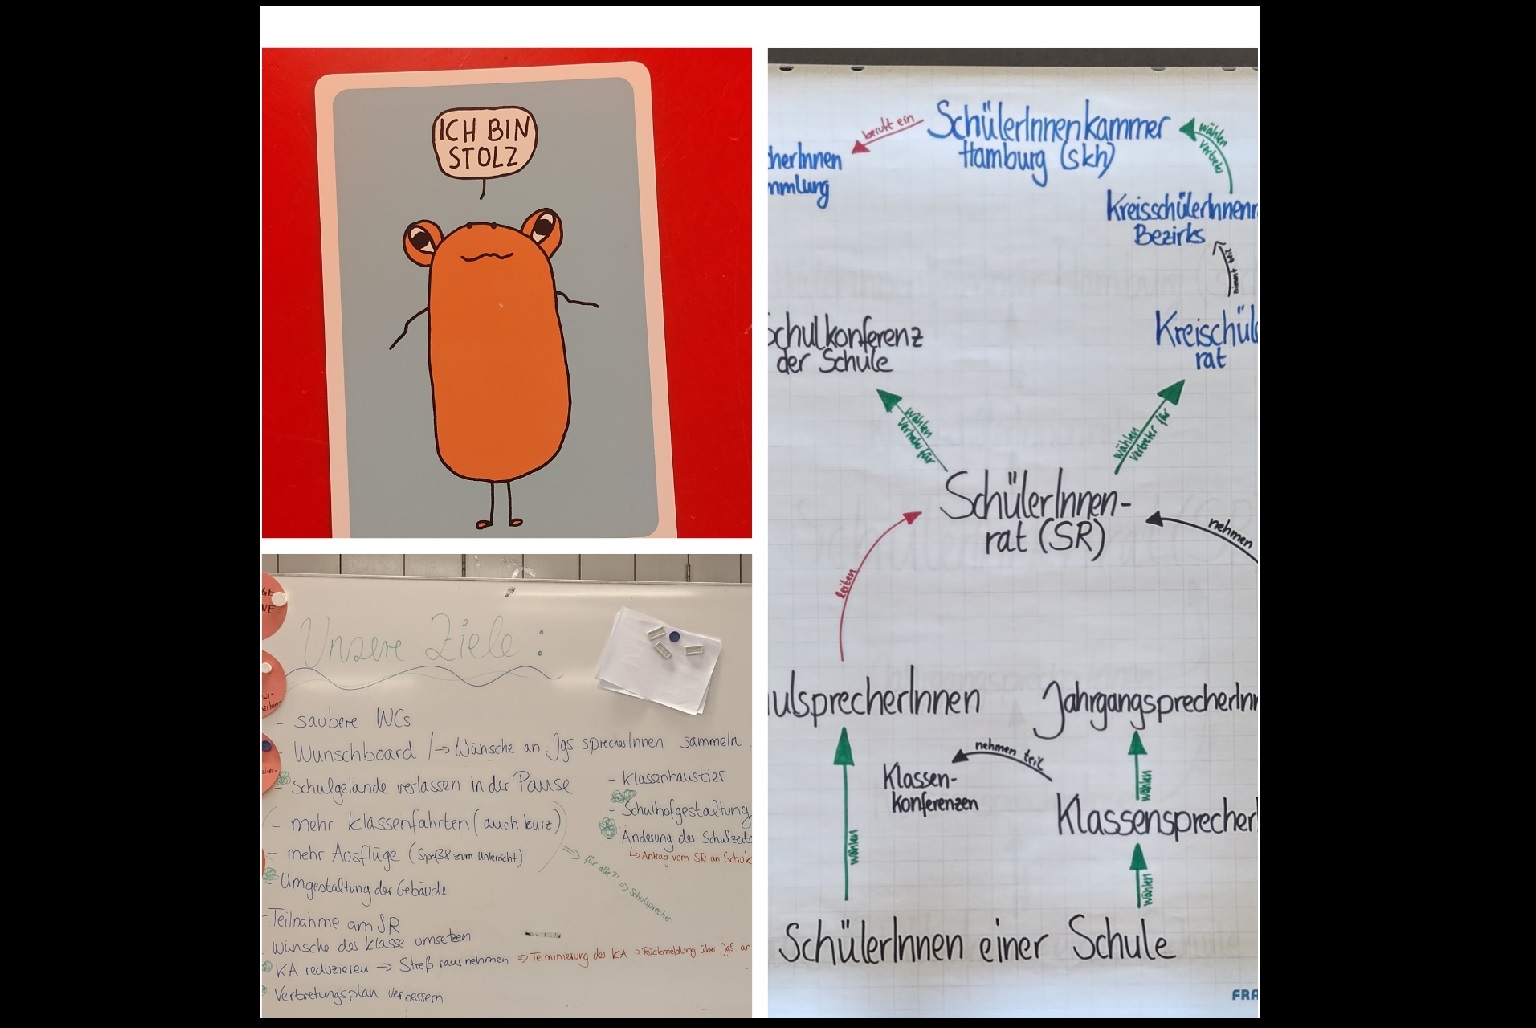 ICH BIN
STOLZ
Unsere Ziele:
- saubere WCs
- Wunschboard / → Wünsche an Jgs sprecherInnen sammeln
Schulgelände verlassen in der Pause
- mehr Klassenfahrten (auch kurz)
- mehr Ausflüge (Spaß zum Unterricht)
Umgestaltung der Gebäude
- Teilnahme am SR
Wünsche der Klasse umsetzen
KA reduzieren → Streß rausnehmen ⇒ Terminierung der KA → Rückmeldung über
Vertretungsplan verbessern
- Klassenhaustier
- Schulhofgestaltung
- Änderung der
↳ Antrag vom SR an
⇒ für alle?! ⇒ Schulsprecher
SchülerInnenkammer
Hamburg (skh)
beruft ein
herInnen
mmlung
wählen
KreisschülerInnenr
Bezirks
nimmt teil
Schulkonferenz
der Schule
Kreischül
rat
wählen
Vertreter für
wählen
Vertreter für
SchülerInnen-
rat (SR)
leiten
nehmen
ulsprecherInnen
JahrgangsprecherInn
nehmen teil
Klassen-
konferenzen
wählen
Klassensprecher
wählen
wählen
SchülerInnen einer Schule
FRA